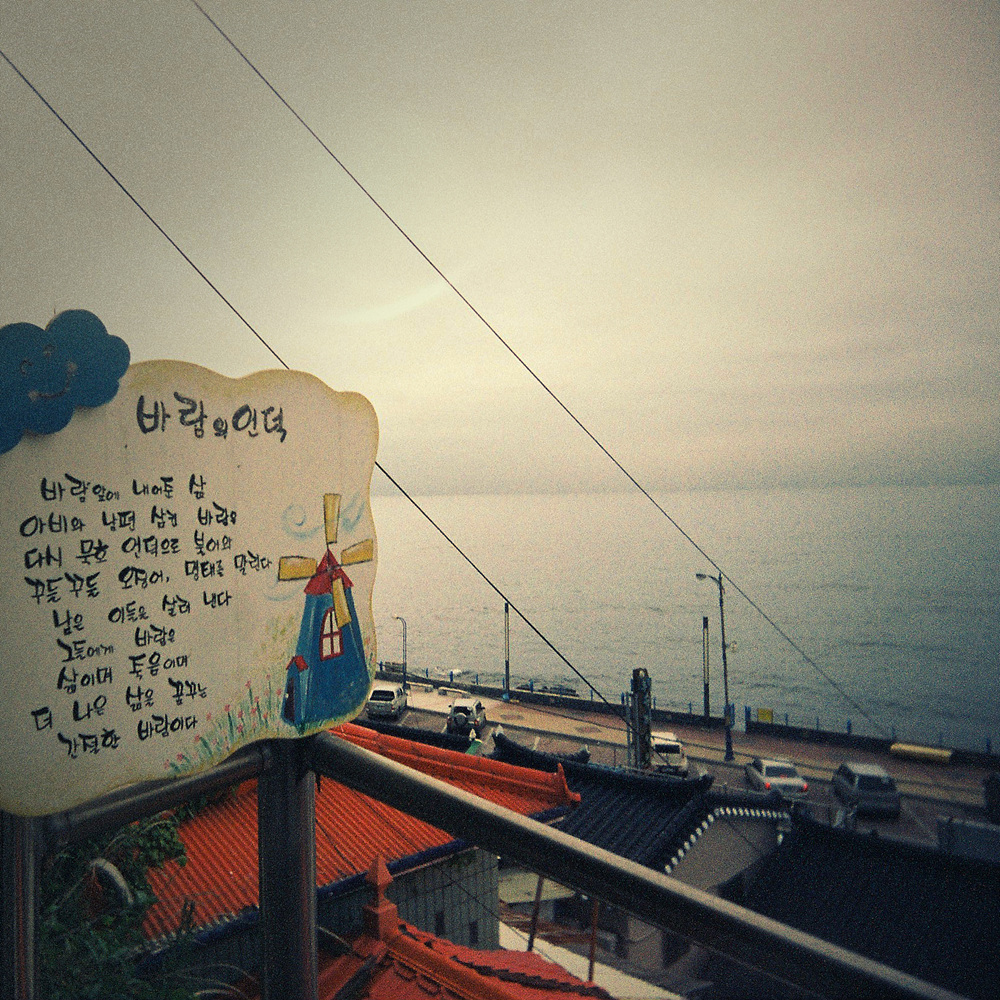 바람의언덕
바람앞에 내어준 삶
아비와 남편 삼킨 바람은
다시 묵호 언덕으로 불어와
꾸들꾸들 오징어, 명태를 말린다
남은 이들을 살려 낸다
그들에게 바람은
삶이며 죽음이며
더 나은 삶을 꿈꾸는
간절한 바람이다